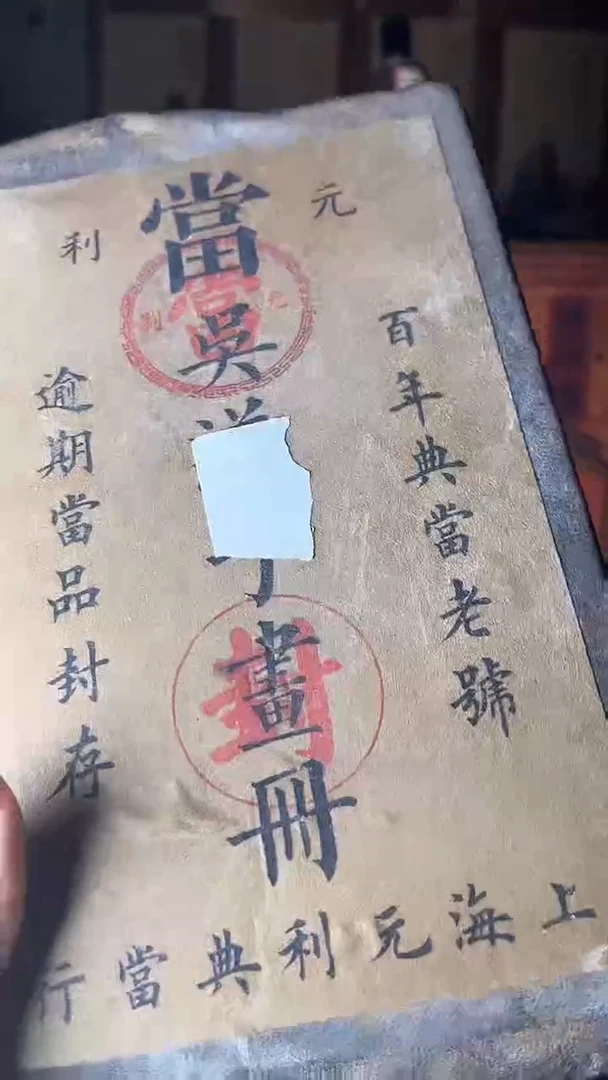 元利
百年典當老號
當吳畫冊
元當利
封
逾期當品封存
上海元利典當行